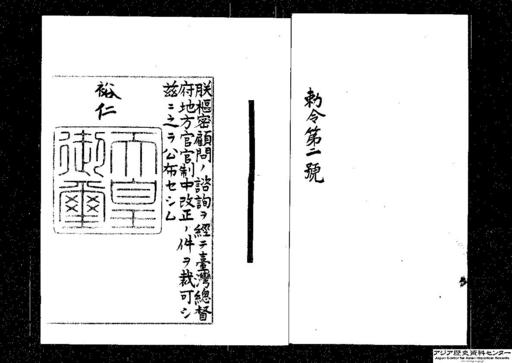 勅令第二號
朕樞密顧問ノ諮詢ヲ經テ臺灣總督
府地方官官制中改正ノ件ヲ裁可シ
茲ニ之ヲ公布セシム
裕仁
天皇
御璽
アジア歴史資料センター
Japan Center for Asian Historical Records